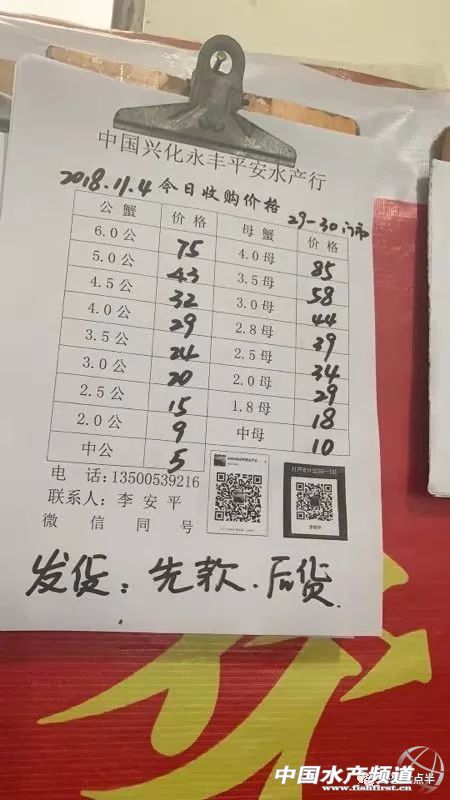 中国兴化永丰平安水产行
2018.11.4 今日收购价格 29-30门市
公蟹 价格 母蟹 价格
6.0公 75 4.0母 85
5.0公 43 3.5母 58
4.5公 32 3.0母 44
4.0公 29 2.8母 39
3.5公 24 2.5母 34
3.0公 20 2.0母 29
2.5公 15 1.8母 18
2.0公 9 中母 10
中公 5
电 话:13500539216
联系人：李安平
微信同号
发货：先款.后货.
中国水产频道
www.fishfirst.cn
点半